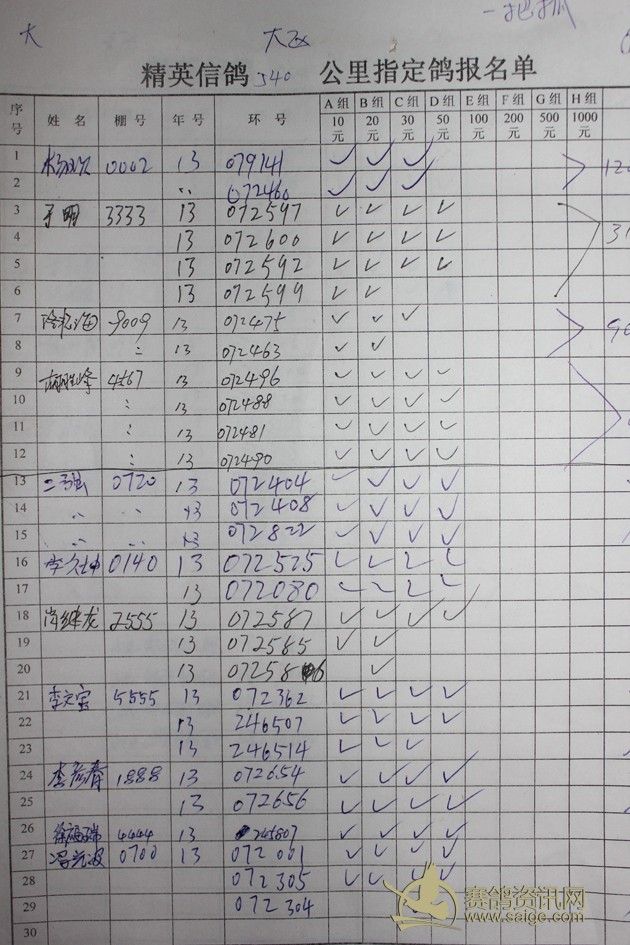 一把抓
大
精英信鸽 540 公里指定鸽报名单
序号 姓名 棚号 年号 环号 A组 10元 B组 20元 C组 30元 D组 50元 E组 100元 F组 200元 G组 500元 H组 1000元
1 0002 13 079141 ✓ ✓ ✓
2 〃 072460 ✓ ✓ ✓
3 于明 3333 13 072597 ✓ ✓ ✓ ✓
4 13 072600 ✓ ✓ ✓ ✓
5 13 072592 ✓ ✓ ✓ ✓
6 13 072599 ✓ ✓
7 9009 13 072475 ✓ ✓ ✓
8 13 072463 ✓ ✓
9 4567 13 072496 ✓ ✓ ✓ ✓
10 13 072488 ✓ ✓ ✓ ✓
11 13 072481 ✓ ✓ ✓ ✓
12 13 072490 ✓ ✓ ✓ ✓
13 0720 13 072404 ✓ ✓ ✓ ✓
14 〃 〃 13 072408 ✓ ✓ ✓ ✓
15 〃 〃 13 072822 ✓ ✓ ✓ ✓
16 0140 13 072525 ✓ ✓ ✓ ✓
17 13 072080 ✓ ✓ ✓ ✓
18 肖继龙 2555 13 072587 ✓ ✓ ✓ ✓
19 13 072585 ✓ ✓
20 13 072586 ✓
21 李文宝 5555 13 072362 ✓ ✓ ✓ ✓
22 13 246507 ✓ ✓ ✓ ✓
23 13 246514 ✓ ✓ ✓
24 李彦春 1888 13 072654 ✓ ✓ ✓ ✓
25 13 072656 ✓ ✓ ✓ ✓
26 4444 13 245807 ✓ ✓ ✓ ✓
27 0700 13 072001 ✓ ✓ ✓ ✓
28 072305 ✓ ✓ ✓ ✓
29 072304
30
赛鸽资讯网
www.saige.com